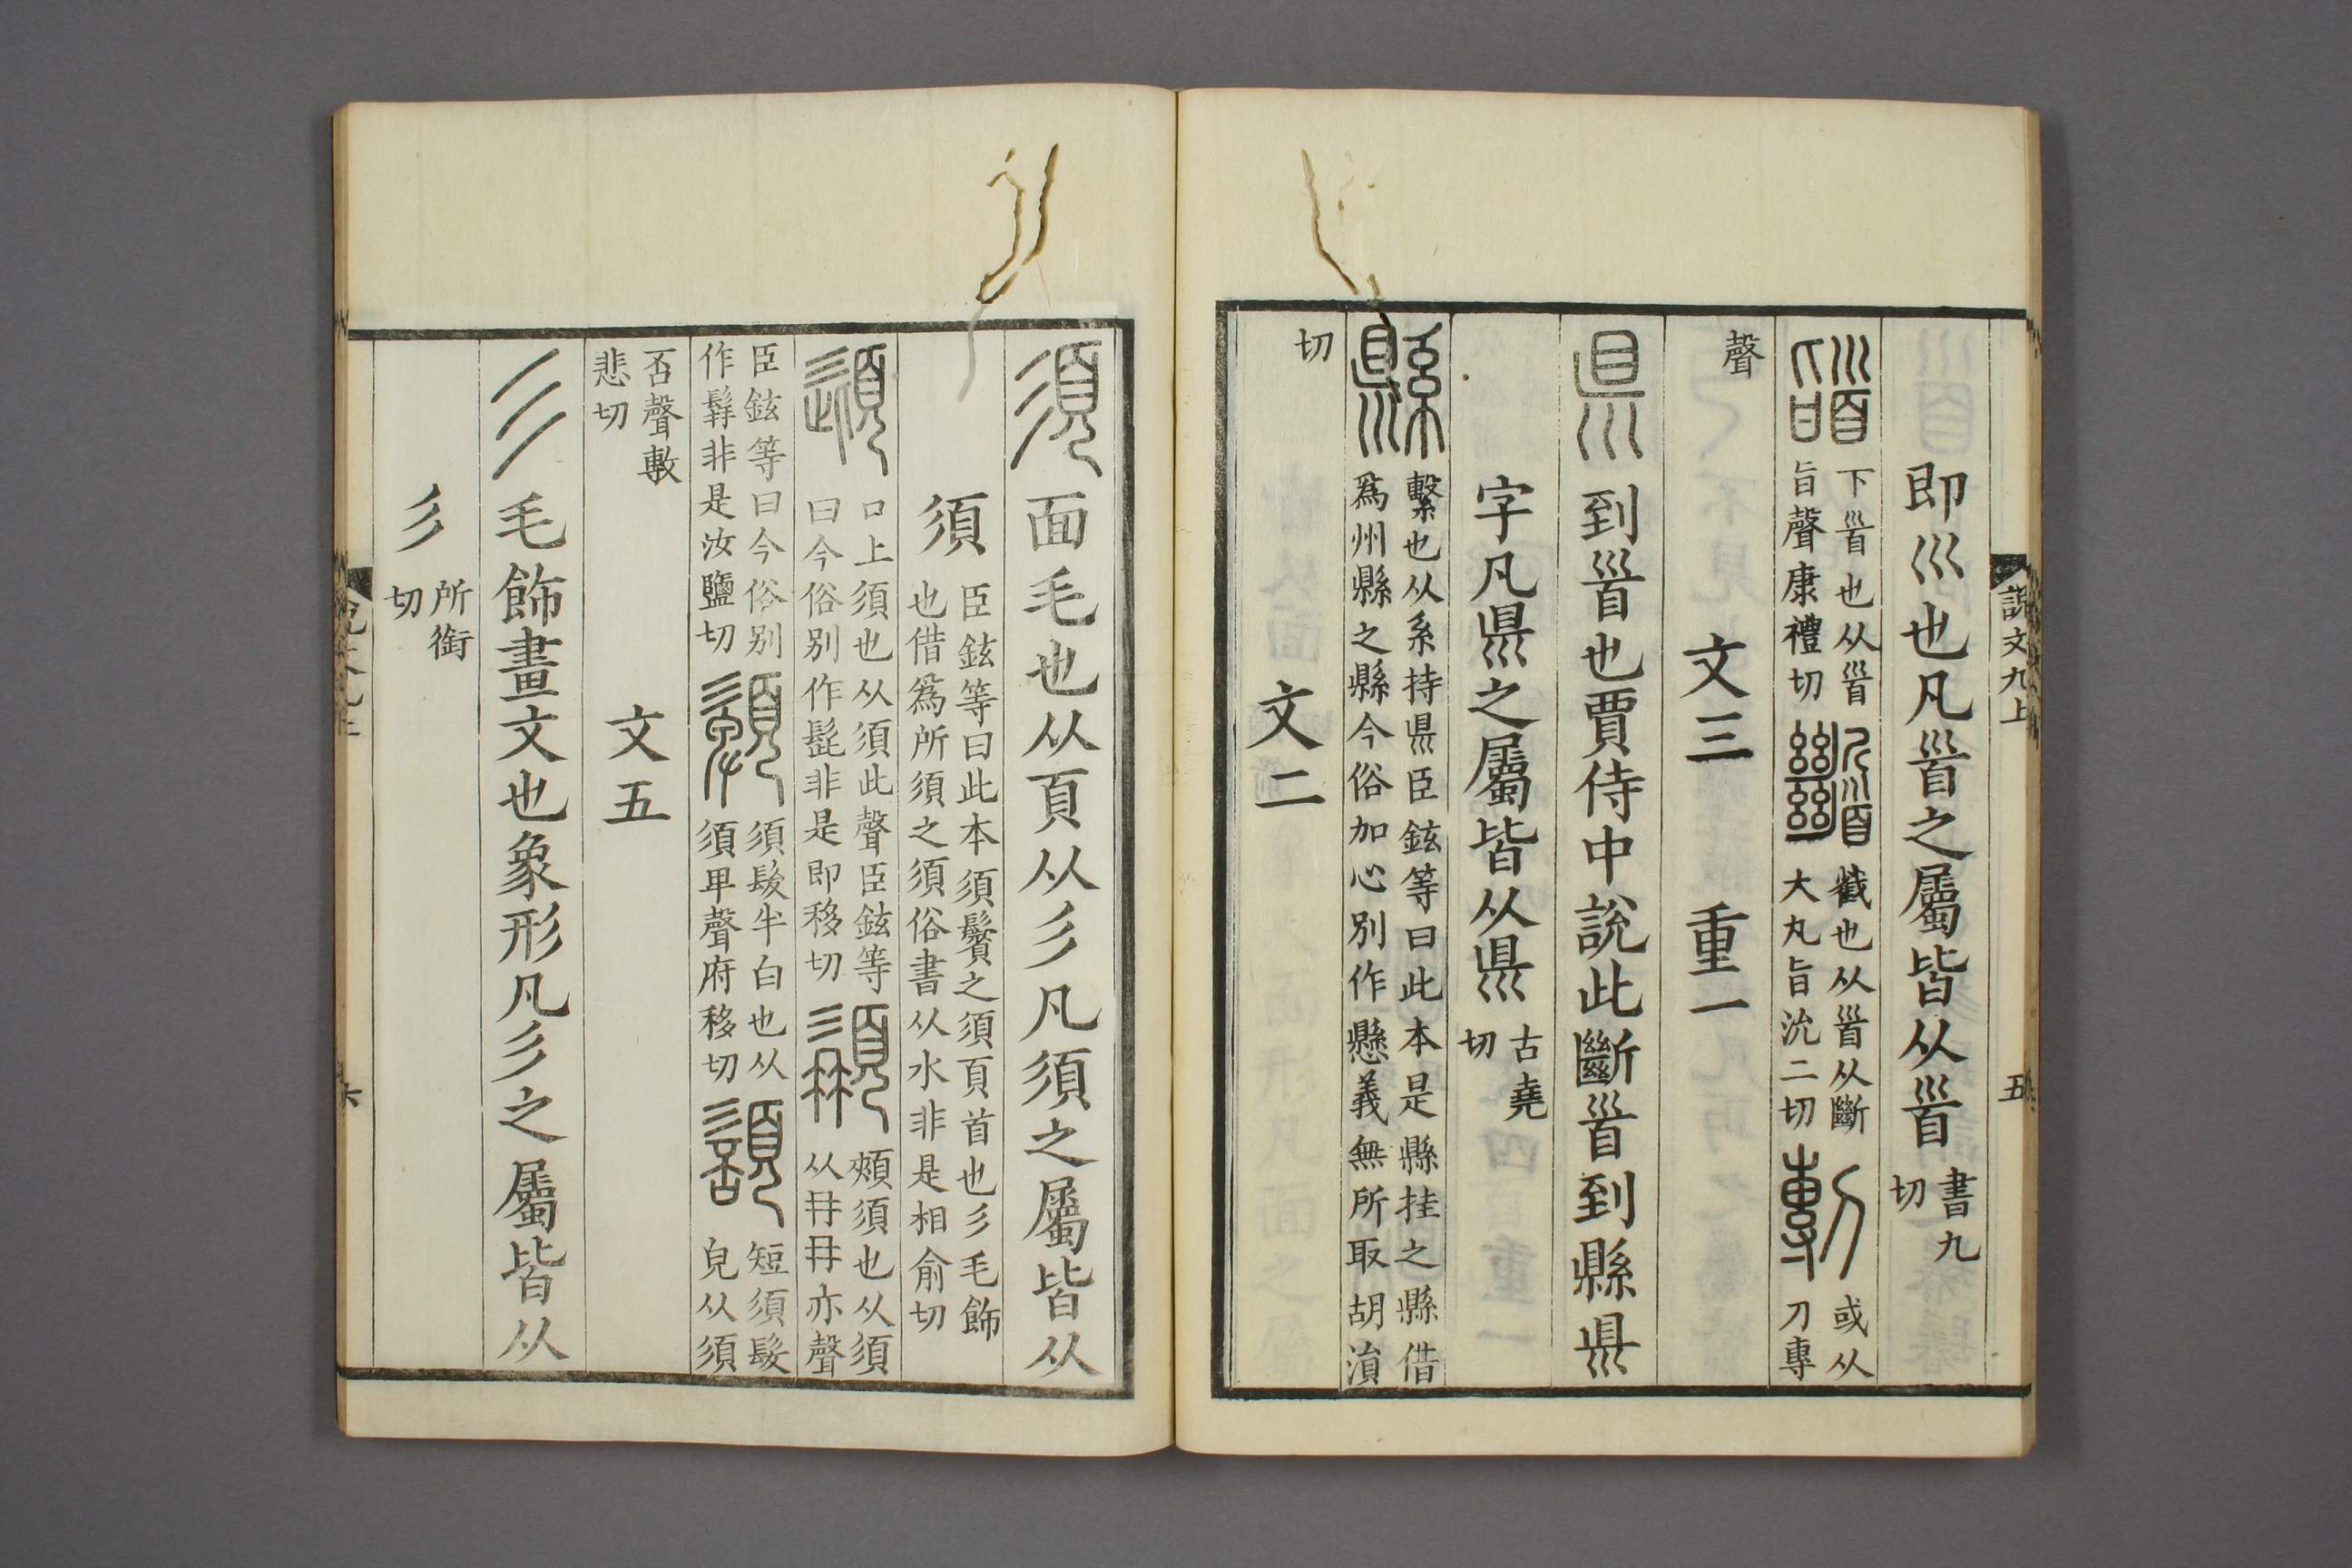 說文九上
五
即巛也凡𩠐之屬皆从𩠐書九切
𩒨下𩠐也从𩠐旨聲康禮切𩠹截也从𩠐从斷大丸旨沇二切剸或从刀專
聲
文三 重一
県到𩠐也賈侍中說此斷𩠐到縣県
字凡県之屬皆从県古堯切
縣繫也从系持県臣鉉等曰此本是縣挂之縣借爲州縣之縣今俗加心別作懸義無所取胡涓
切
文二
須面毛也从頁从彡凡須之屬皆从
須臣鉉等曰此本須鬢之須頁首也彡毛飾也借爲所須之須俗書从水非是相俞切
頾口上須也从須此聲臣鉉等曰今俗別作髭非是即移切䫇頰須也从須从冄冄亦聲
臣鉉等曰今俗別作髥非是汝鹽切顊須髮半白也从須卑聲府移切䫠短須髮皃从須
否聲敷悲切
文五
彡毛飾畫文也象形凡彡之屬皆从
彡所銜切
六